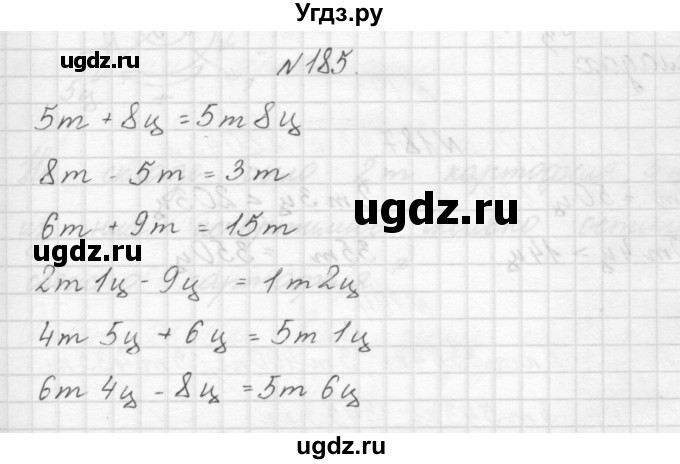 Угдз.ру
ugdz.ru
№185.
5т + 8ц = 5т 8ц
8т - 5т = 3т
6т + 9т = 15т
ugdz.ru
ugdz.ru
2т 1ц - 9ц = 1т 2ц
4т 5ц + 6ц = 5т 1ц
6т 4ц - 8ц = 5т 6ц
ugdz.ru
ugdz.ru